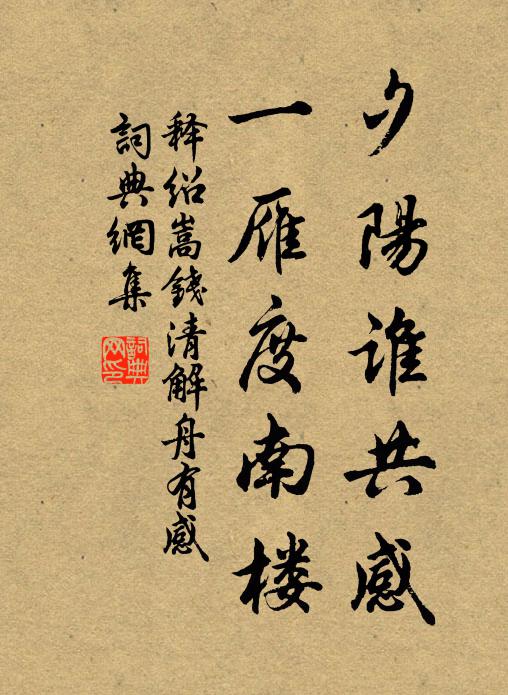 夕陽谁共感
一雁度南楼
释紹嵩錢清解舟有感
詞典網集
詞典
网印